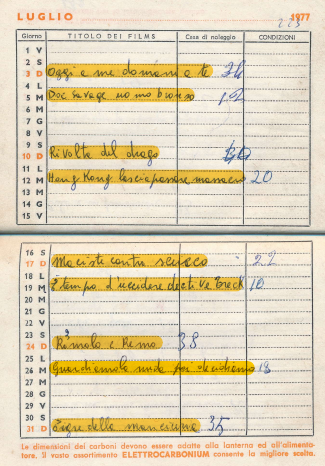 LUGLIO 1977
223
Giorno TITOLO DEI FILMS Casa di noleggio CONDIZIONI
1 V
2 S
3 D Oggi a me domani a te 26
4 L
5 M Doc Savage uomo bronzo 12
6 M
7 G
8 V
9 S
10 D Rivolta del drago
11 L
12 M Hong Kong lascia passare massacro 20
13 M
14 G
15 V
16 S
17 D Maciste contro sceicco 22
18 L
19 M È tempo d'uccidere detective Treck 10
20 M
21 G
22 V
23 S
24 D Romolo e Remo 38
25 L
26 M Guardiamola nuda per 18
27 M
28 G
29 V
30 S
31 D Tigre della manciuria 35
Le dimensioni dei carboni devono essere adatte alla lanterna ed all'alimento-
tore. Il vasto assortimento ELETTROCARBONIUM consente la migliore scelta.